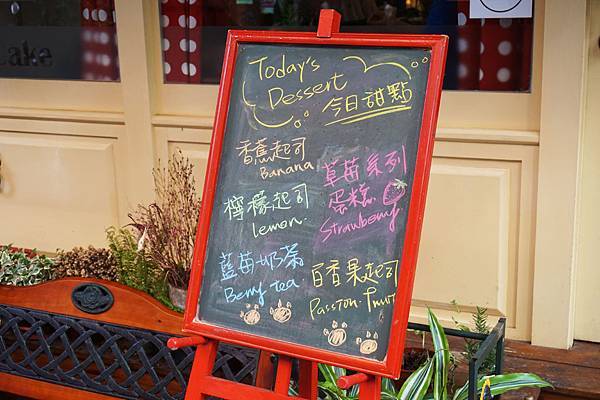 Cake
Today's
Dessert
今日甜點
香蕉起司
Banana
檸檬起司
lemon
藍莓奶茶
Berry tea
草莓系列
蛋糕
Strawberry
百香果起司
Passion fruit